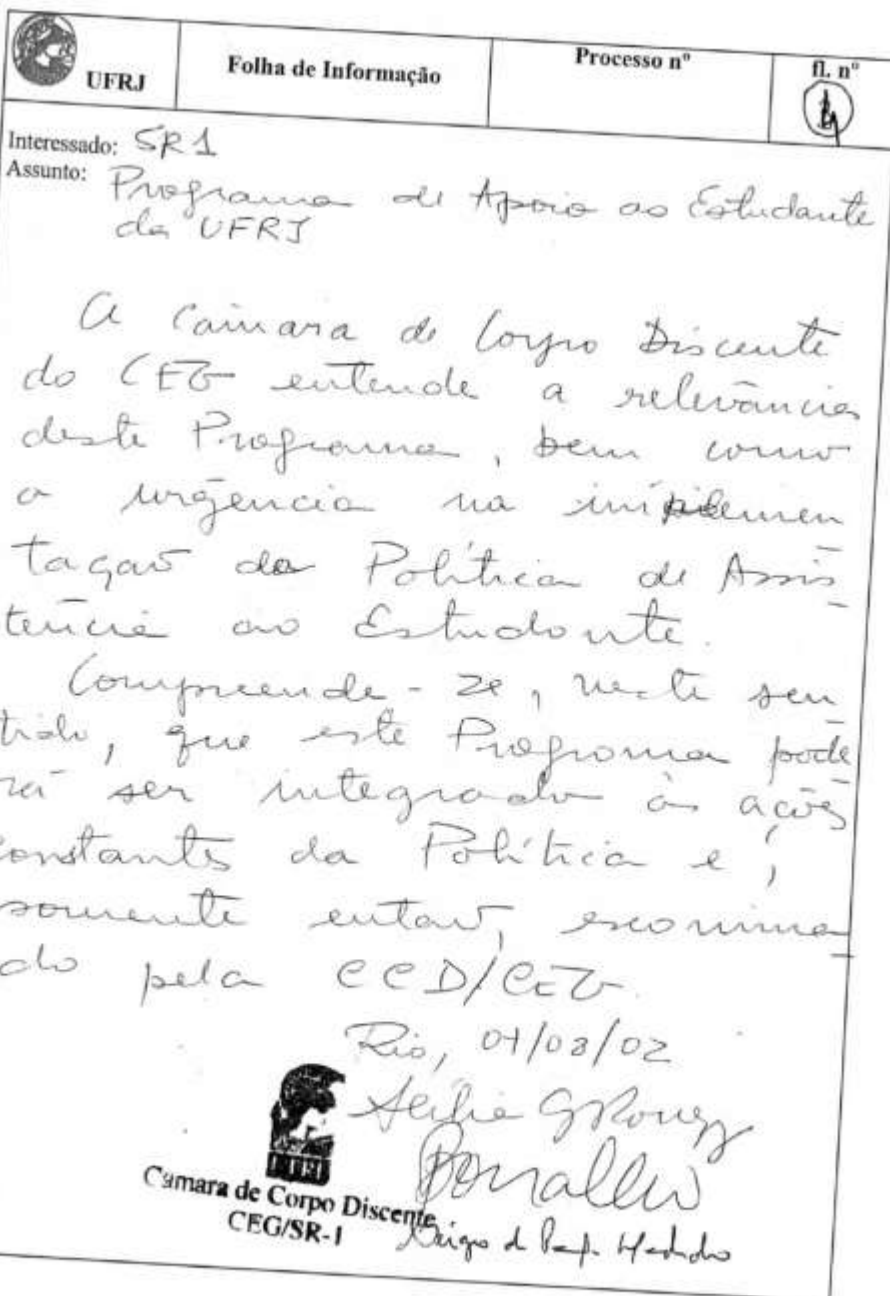 UFRJ
Folha de Informação
Processo nº
fl. nº
Interessado: SR1
Assunto: Programa de Apoio ao Estudante
da UFRJ
A Câmara de Corpo Discente
do CEG entende a relevância
deste Programa, bem como
a urgência na implemen
tação da Política de Assis
tência ao Estudante.
Compreende-se, neste sen
tido, que este Programa pode
rá ser integrado às ações
constantes da Política e,
somente então, examina
do pela CCD/CEG.
Rio, 01/08/02
UFRJ
Camara de Corpo Discente
CEG/SR-1